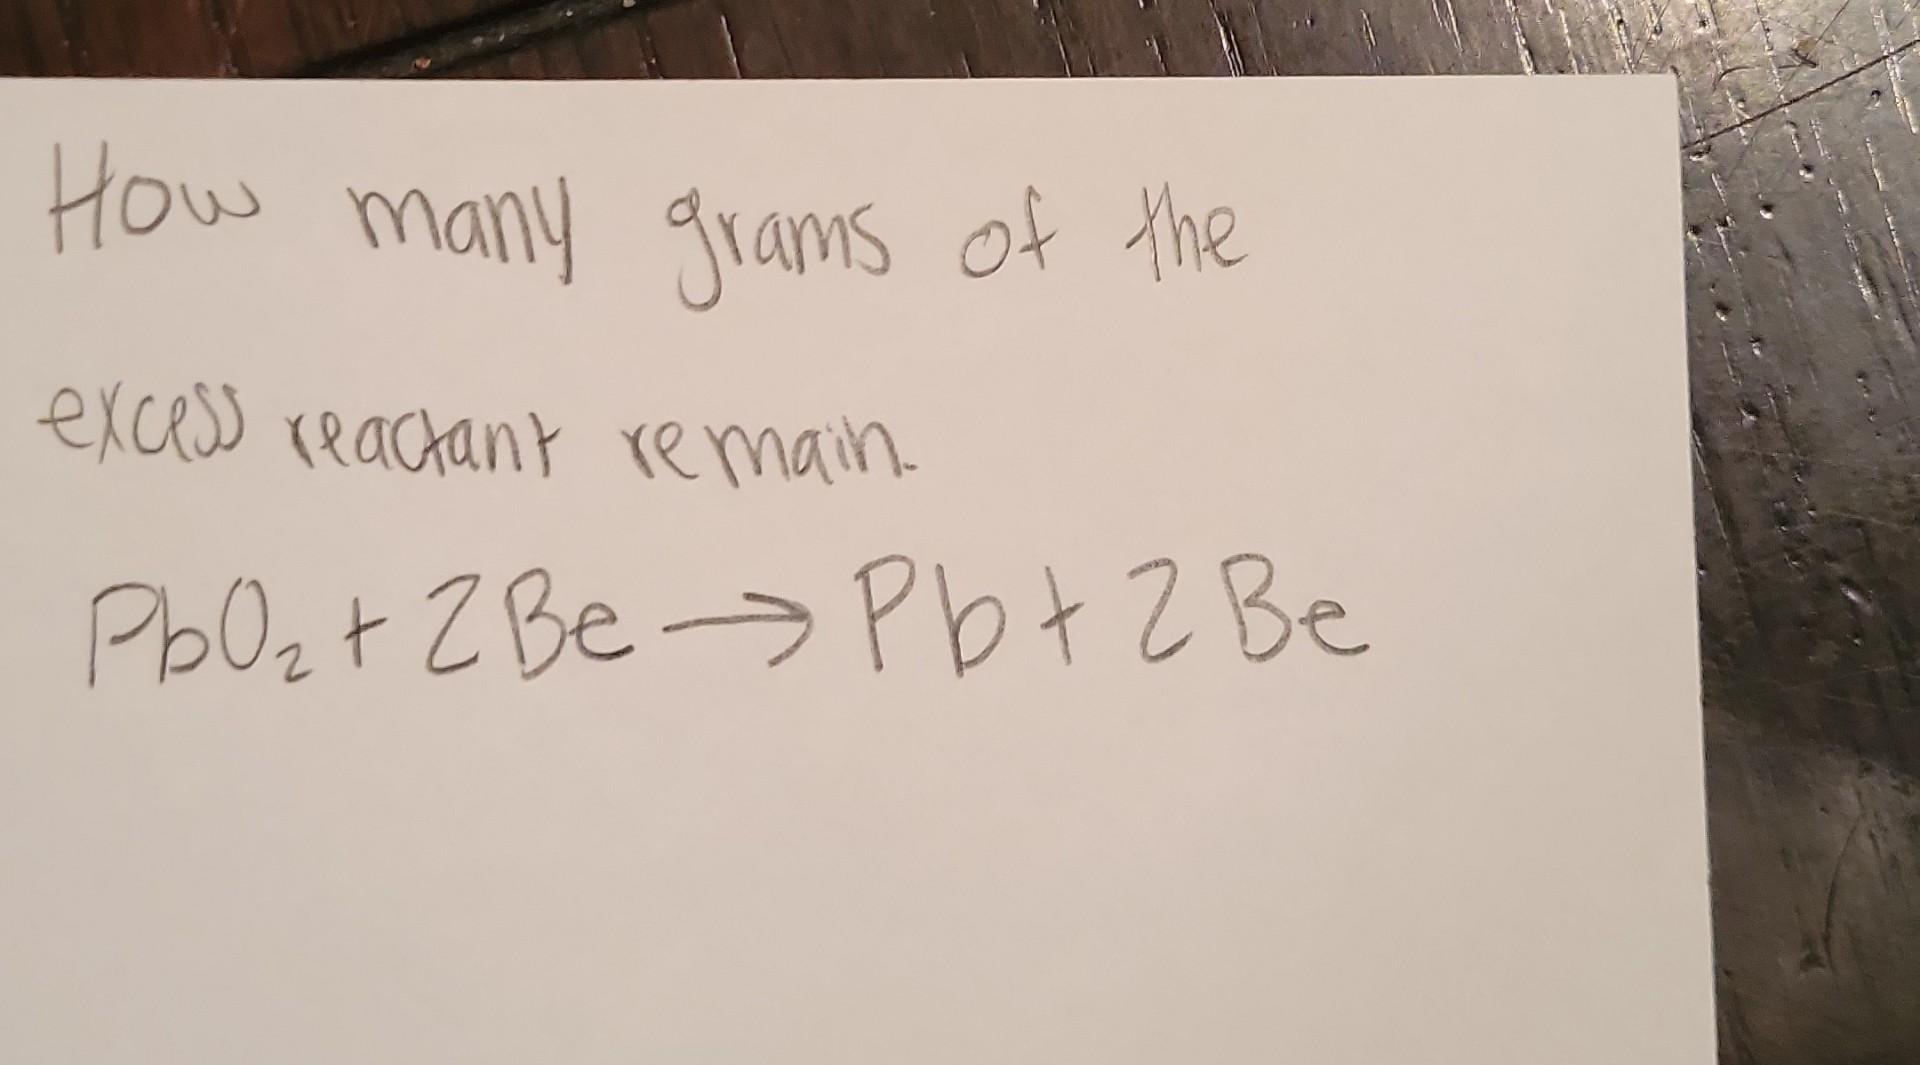 How many grams of the
excess reactant remain.
PbO₂ + 2Be → Pb + 2Be